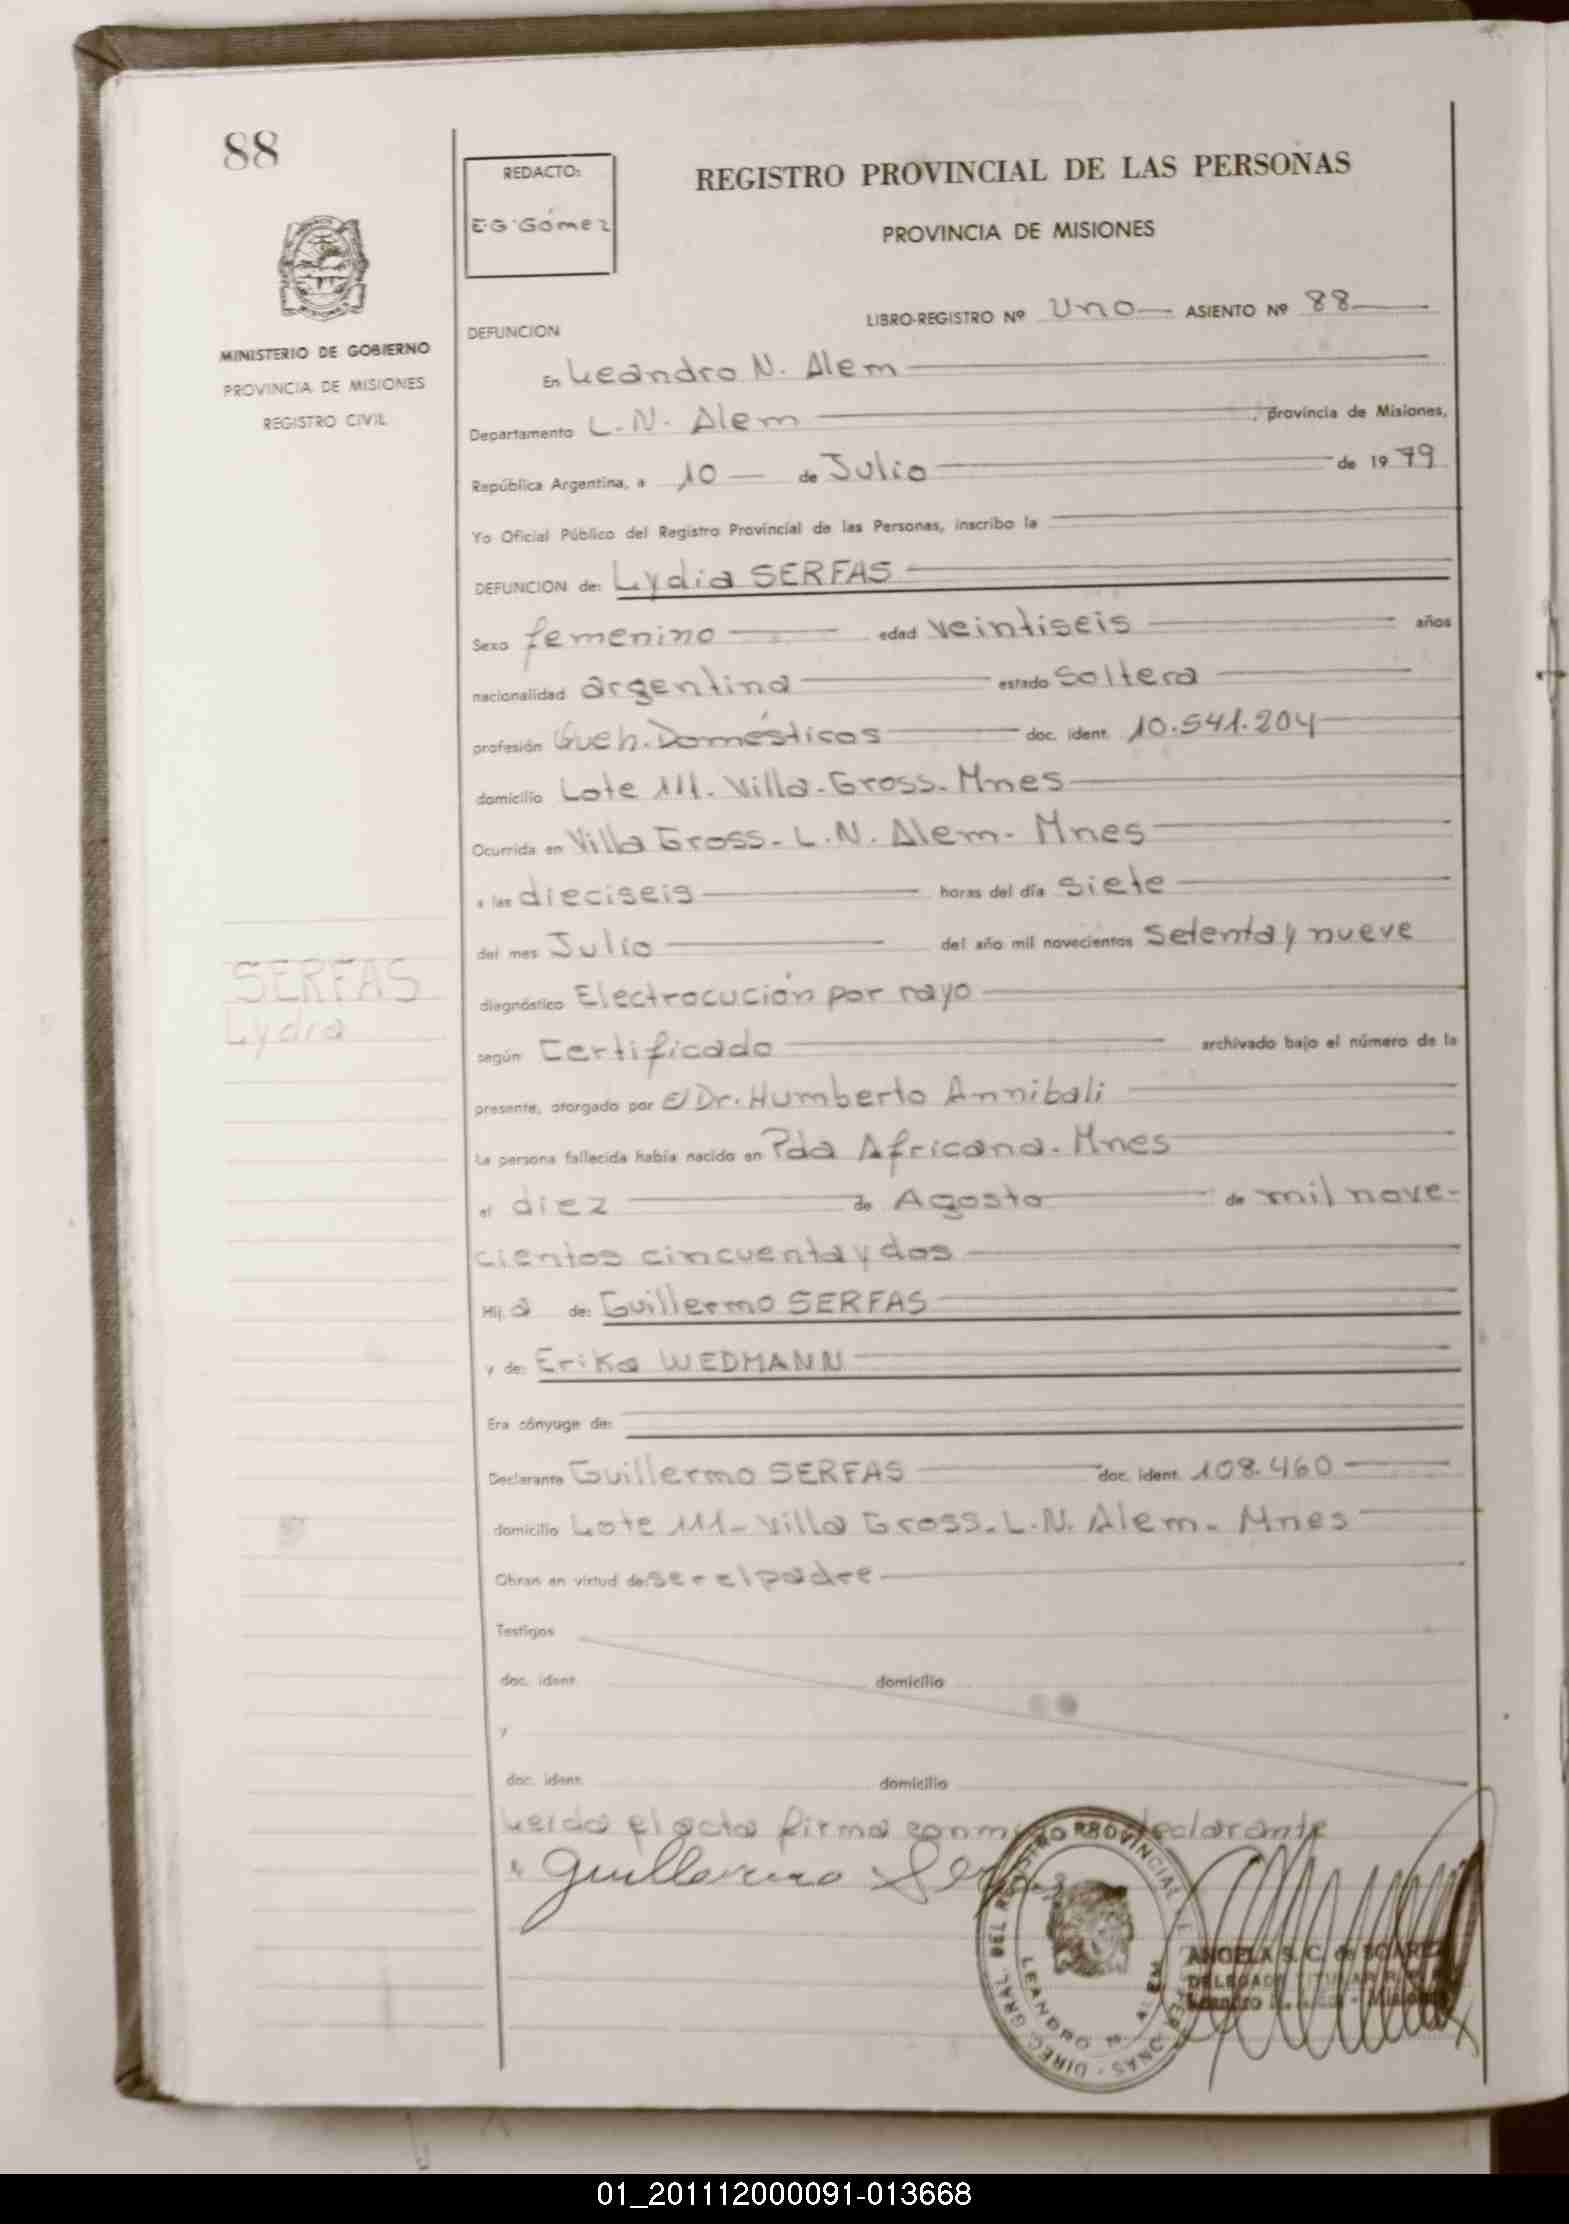 88
REDACTO:
E.G. Gómez
REGISTRO PROVINCIAL DE LAS PERSONAS
PROVINCIA DE MISIONES
MINISTERIO DE GOBIERNO
PROVINCIA DE MISIONES
REGISTRO CIVIL
LIBRO-REGISTRO Nº Uno ASIENTO Nº 88
DEFUNCION
En Leandro N. Alem
Departamento L. N. Alem, provincia de Misiones,
República Argentina, a 10 de Julio de 1979
Yo Oficial Público del Registro Provincial de las Personas, inscribo la
DEFUNCION de: Lydia SERFAS
Sexo femenino edad veintiseis años
nacionalidad argentina estado soltera
profesión Queh. Domésticos doc. ident. 10.541.204
domicilio Lote 111. Villa-Gross. Mnes
Ocurrida en Villa Gross. L. N. Alem. Mnes
a las dieciseis horas del día siete
del mes Julio del año mil novecientos setenta y nueve
SERFAS
Lydia
diagnóstico Electrocución por rayo
según Certificado archivado bajo el número de la
presente, otorgado por el Dr. Humberto Annibali
La persona fallecida había nacido en Pda Africana. Mnes
el diez de Agosto de mil nove-
cientos cincuenta y dos
Hij a de: Guillermo SERFAS
y de: Erika WEDMANN
Era cónyuge de:
Declarante Guillermo SERFAS doc. ident. 108.460
domicilio Lote 111 - Villa Gross. L. N. Alem. Mnes
Obran en virtud de: ser el padre
Testigos
doc. ident. domicilio
y
doc. ident. domicilio
Leída el acta firma conm declarante
Guillermo
DIREC. GRAL. DEL REGISTRO PROVINCIAL
LEANDRO N. ALEM
ANGELA S. C. de
DELEGADA TITULAR
Leandro N. Alem - Misiones
01_201112000091-013668